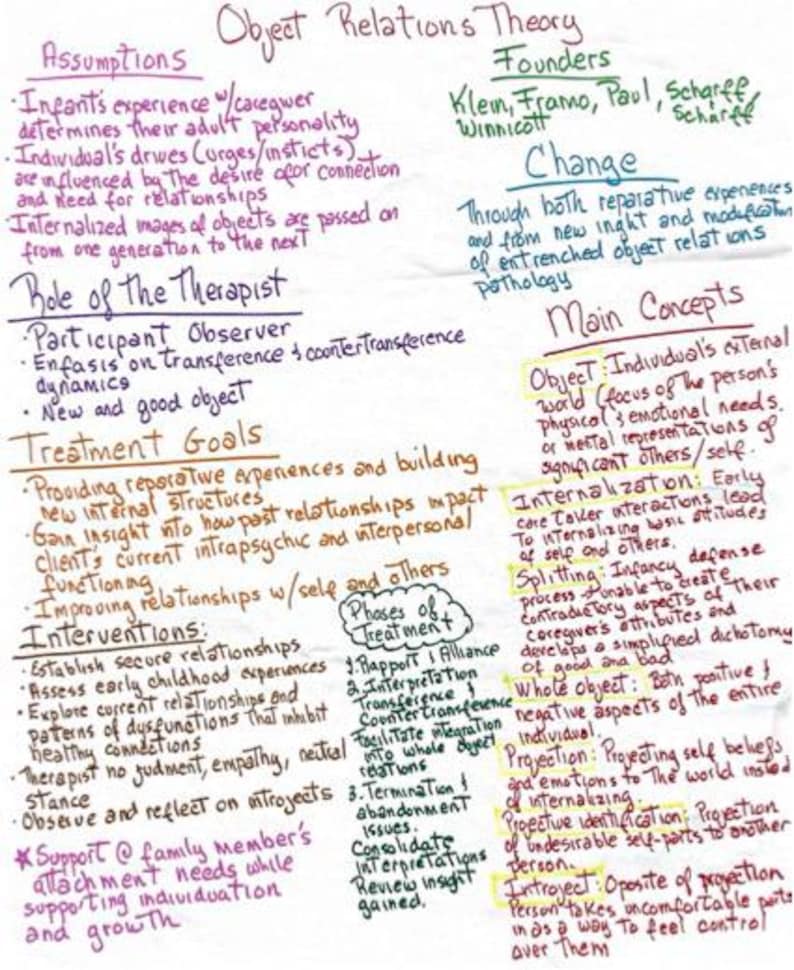 Object Relations Theory
Assumptions
· Infant's experience w/caregiver
determines their adult personality
· Individual's drives (urges/insticts)
are influenced by the desire for connection
and need for relationships
· Internalized images of objects are passed on
from one generation to the next
Founders
Klein, Framo, Paul, Scharff,
Winnicott Scharff
Change
Through both reparative experiences
and from new inght and modification
of entrenched object relations
pathology
Role of the Therapist
· Participant Observer
· Enfasis on transference & countertransference
dynamics
· New and good object
Treatment Goals
· Providing reparative experiences and building
new internal structures
· Gain insight into how past relationships impact
client's current intrapsychic and interpersonal
functioning
· Improving relationships w/self and others
Interventions:
· Establish secure relationships
· Assess early childhood experiences
· Explore current relationships and
paterns of dysfunctions that inhibit
healthy connections
· Therapist no judment, empathy, neutral
stance
· Observe and reflect on introjects
* Support @ family member's
attachment needs while
supporting individuation
and growth
Phases of
Treatment
1. Rapport & Alliance
2. Interpretation
Transference &
Countertransference
Facilitate integration
into whole object
relations
3. Termination &
abandonment
issues.
Consolidate
interpretations
Review insight
gained.
Main Concepts
Object: Individual's external
world (focus of the person's
physical & emotional needs.
or mental representations of
significant others/self.
Internalization: Early
care taker interactions lead
To internalizing basic attitudes
of self and others.
Splitting: Infancy defense
process → unable to create
contradictory aspects of their
caregiver's attributes and
develops a simplified dichotomy
of good and bad
Whole object: Both positive &
negative aspects of the entire
individual.
Projection: Projecting self beliefs
and emotions to the world insted
of internalizing.
Projective identification: Projection
of undesirable self-parts to another
person.
Introject: Oposite of projection
Person takes uncomfortable parts
in as a way to feel control
over them